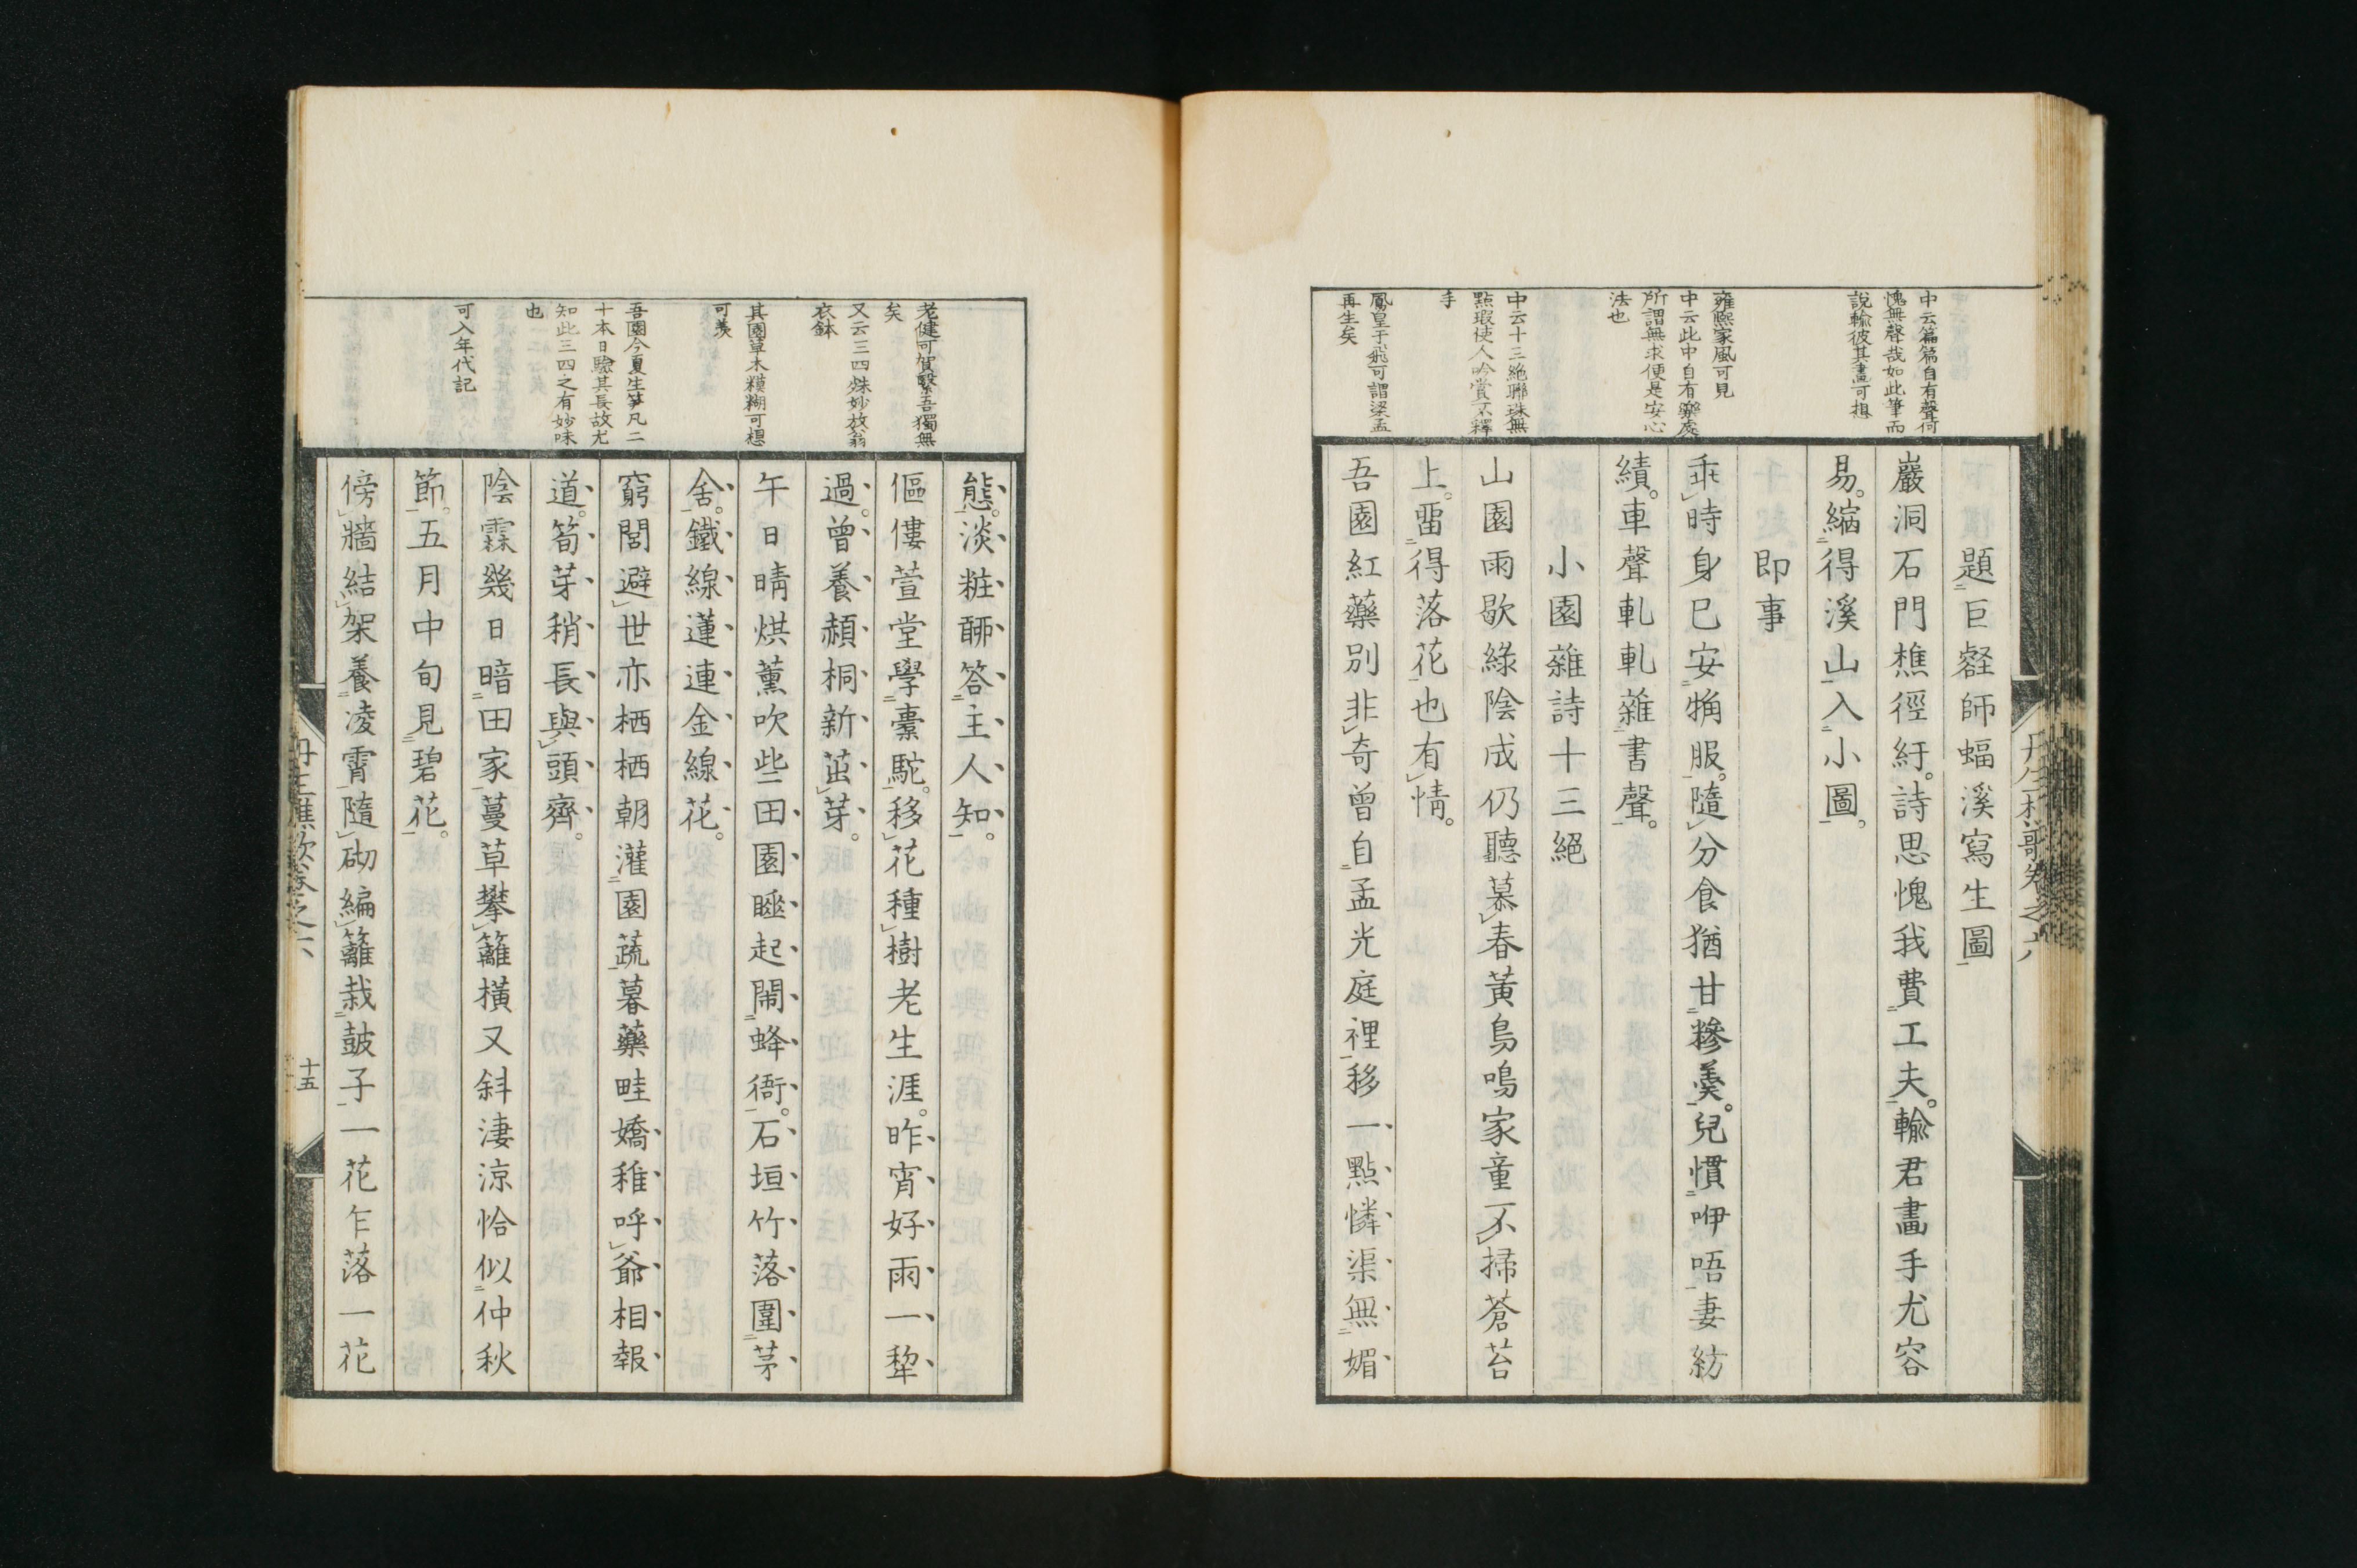 中云篇篇自有聲何
愧無聲哉如此筆而
說輸彼其畫可想
雍熈家風可見
中云此中自有樂處
所謂無求便是安心
法也
中云十三絕聯珠無
點瑕使人吟賞不釋
手
鳳皇于飛可謂梁孟
再生矣
題巨壑師蝠溪寫生圖
巖洞石門樵徑紆。詩思愧我費工夫。輸君畵手尤容
易。縮得溪山入小圖。
即事
乖時身已安犕服。隨分食猶甘糝羹。兒慣咿唔妻紡
績。車聲軋軋蘿書聲。
小園雜詩十三絕
山園雨歇綠陰成仍聽慕春黃鳥鳴家童不掃蒼苔
上。畱得落花也有情。
吾園紅藥別非奇曾自孟光庭裡移一點憐渠無媚
老健可賀繄吾獨無
矣
又云三四姝妙放翁
衣鉢
其園草木糢糊可想
可羨
吾園今夏生笋凡二
十本日驗其長故尤
知此三四之有妙味
也
可入年代記
態。淡粧聊答主人知。
傴僂萱堂學橐駝。移花種樹老生涯。昨宵好雨一犂
過。曾養頳桐新茁芽。
午日晴烘薰吹些田園睡起鬧蜂衙。石垣竹落圍茅
舍。鐵線蓮連金線花。
窮閭避世亦栖栖朝灌園蔬暮藥畦嬌稚呼爺相報
道。筍芽稍長與頭齊。
陰霖幾日暗田家蔓草攀籬橫又斜淒涼恰似仲秋
節。五月中旬見碧花。
傍牆結架養凌霄隨砌編籬栽鼓子一花乍落一花
十五